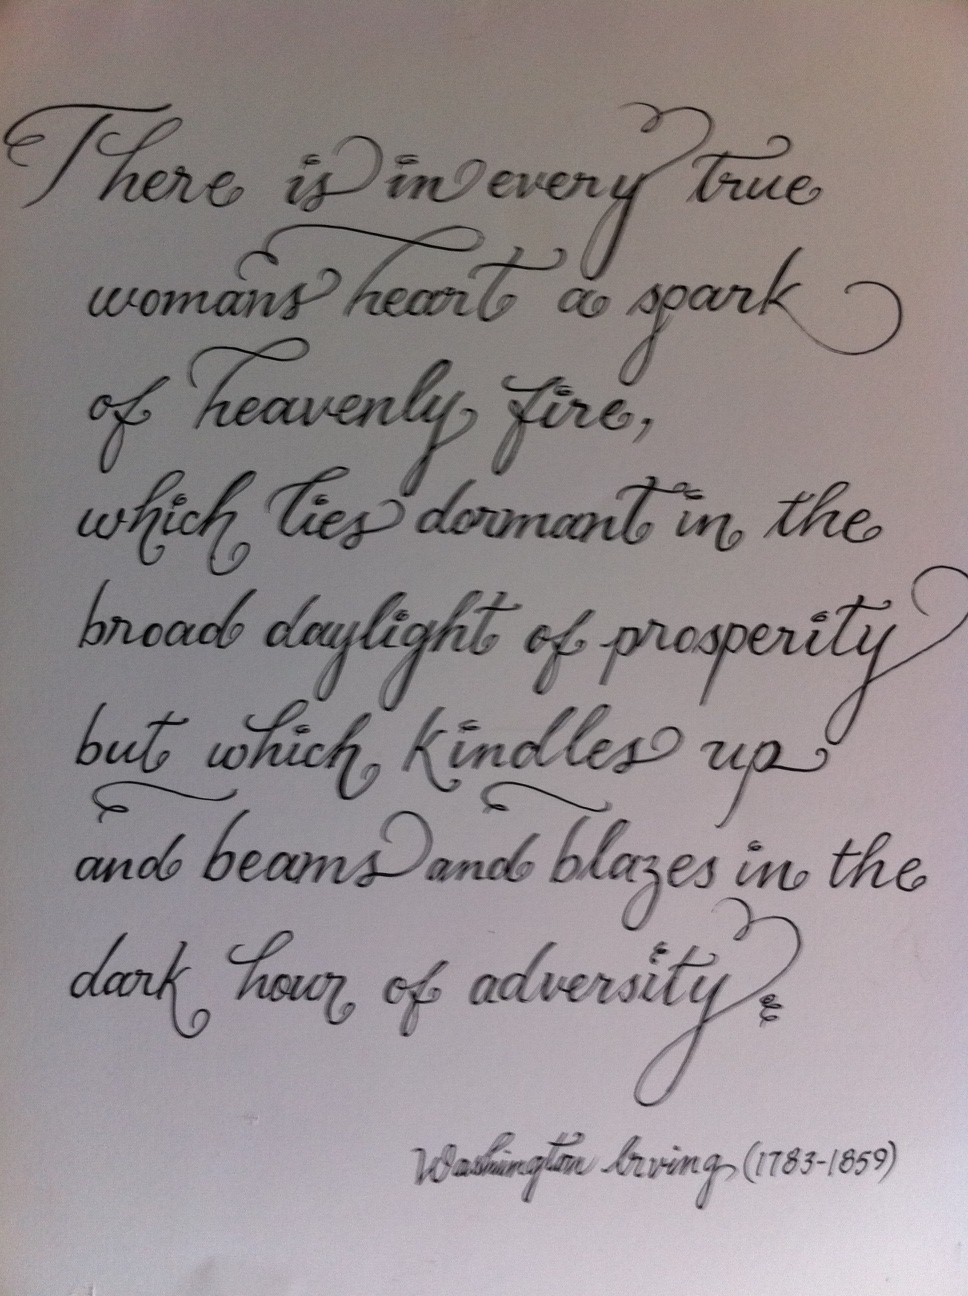 There is in every true
woman's heart a spark
of heavenly fire,
which lies dormant in the
broad daylight of prosperity
but which kindles up
and beams and blazes in the
dark hour of adversity.
Washington Irving (1783-1859)